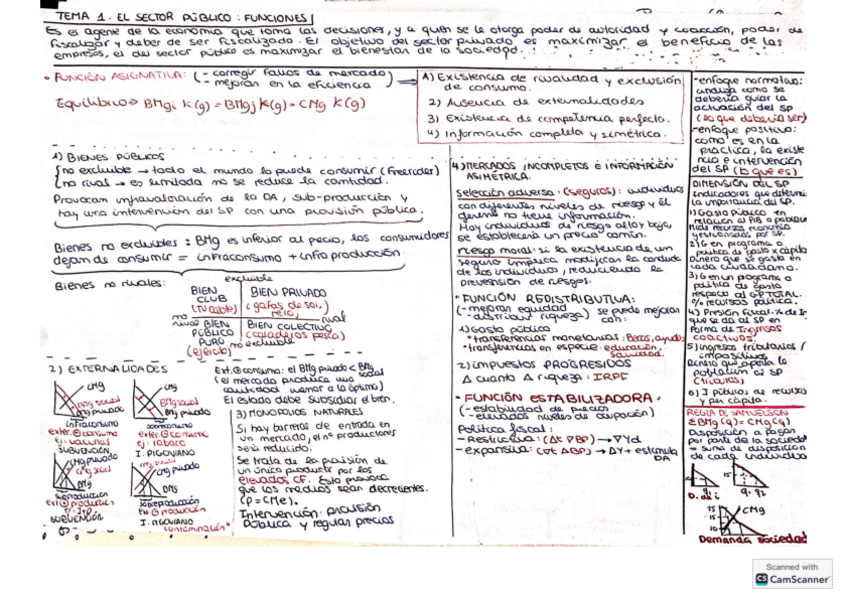 TEMA 1. EL SECTOR PÚBLICO: FUNCIONES
Es el agente de la economía que toma las decisiones, y a quien se le otorga poder de autoridad y coacción, poder de
fiscalizar y deber de ser fiscalizado. El objetivo del sector privado es maximizar el beneficio de las
empresas, el del sector público es maximizar el bienestar de la sociedad.
• FUNCIÓN ASIGNATIVA: (- corregir fallos de mercado)
(- mejorar en la eficiencia)
Equilibrio ⇒ BMgi k(g) = BMgj k(g) = CMg k(g)
1) Existencia de rivalidad y exclusión
de consumo.
2) Ausencia de externalidades
3) Existencia de competencia perfecta.
4) Información completa y simétrica.
1) BIENES PÚBLICOS
no excluible → todo el mundo lo puede consumir (Freerider)
no rival → es ilimitada no se reduce la cantidad.
Provocan infravaloración de la DA, sub-producción y
hay una intervención del SP con una provisión pública.
Bienes no excluibles: BMg es inferior al precio, los consumidores
dejan de consumir = infraconsumo + infraproducción
Bienes no rivales:
excluible
BIEN CLUB
(TV cable)
BIEN PRIVADO
(gafas de sol,
no rival
rival
BIEN PÚBLICO PURO
(ejército)
BIEN COLECTIVO
(caladeros pesca)
no excluible
2) EXTERNALIDADES
CMg
CMg
BMg social
BMg privado
BMg privado
infraconsumo
sobreconsumo
exter. ⊕ consumo
exter. ⊖ consumo
ej: vacunas
ej: tabaco
SUBVENCIÓN
I. PIGOUVIANO
CMg privado
CMg social
CMg privado
subproducción
sobreproducción
ext ⊕ producción
Ext ⊖ producción
SUBVENCIÓN
I. PIGOUVIANO
contaminación
Ext. ⊕ consumo: el BMg privado < BMg
(el mercado produce una
cantidad menor a la óptima)
El estado debe subsidiar el bien.
3) MONOPOLIOS NATURALES
Si hay barreras de entrada en
un mercado, el nº productores
será reducido.
Se trata de la provisión de
un único productor por los
elevados CF. Esto provoca
que los medios sean decrecientes.
(P = CMe).
Intervención: provisión
pública y regular precios
4) MERCADOS INCOMPLETOS E INFORMACIÓN
ASIMÉTRICA.
Selección adversa: (seguros): individuos
con diferentes niveles de riesgo y él
no tiene información.
Hay individuos de riesgo alto y bajo,
se establecerá un precio común.
riesgo moral: si la existencia de un
seguro implica modificar la conducta
de los individuos, reduciendo la
prevención de riesgos.
• FUNCIÓN REDISTRIBUTIVA:
(- mejoran equidad
- distribuir riqueza) se puede mejorar
con:
1) Gasto público
• transferencias monetarias: Becas, ayudas
• transferencias en especie: educación,
sanidad.
2) IMPUESTOS PROGRESIVOS
Δ cuanto Δ riqueza: IRPF
• FUNCIÓN ESTABILIZADORA:
(- estabilidad de precios
- elevados niveles de ocupación)
Política fiscal:
- Restrictiva:
- expansiva:
-enfoque normativo:
analiza como se
debería guiar la
actuación del SP
(lo que debería ser)
-enfoque positivo:
como es en la
práctica, la existe
ncia e intervención
del SP (lo que es)
DIMENSIÓN DEL SP
Indicadores que determi
la importancia del SP.
1) Gasto público en
relación al PIB
gestionados por SP.
2) G en programa o
política de gasto x cápita
Dinero que se gasta en
cada ciudadano.
3) G en un programa o
política de gasto
respecto al GP TOTAL.
% recursos política.
4) Presión fiscal: % de I
que se da al SP en
forma de Ingresos
coactivos.
5) Ingresos tributarios /
impositivos
Dinero que aporta la
población al SP
(tributos)
6) I públicos de recursos
y per cápita.
REGLA DE SAMUELSON
ΣBMg(q) = CMg(q)
Disposición a pagar
por parte de la sociedad
= suma de disposición
de cada individuo
CMg
Demanda sociedad
Scanned with
CS CamScanner